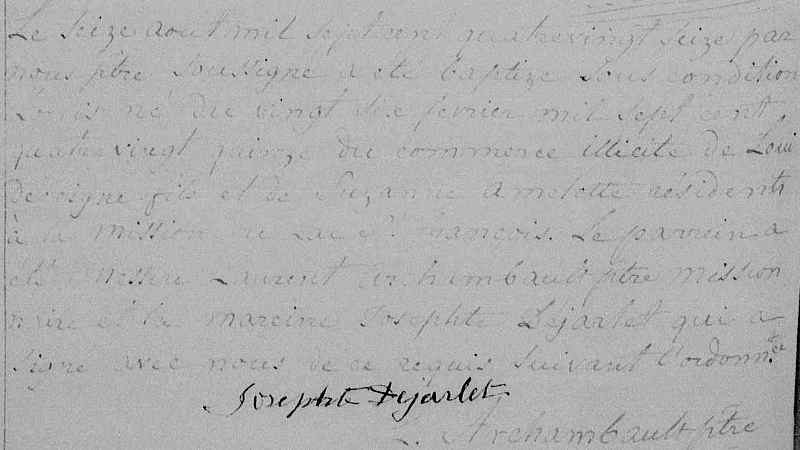 Le Seize aout mil sept cent quatrevingt Seize par
nous ptre Soussigne a eté baptize Sous condition
Louis né du vingt six fevrier mil sept cent
quatre vingt quinze du commerce illicite de Loui
Devoigne fils et de Suzanne Amelotte résidents
à la mission du Lac St francois. Le parrein a
eté Messire Laurent Archimbault ptre mission
naire et la mareine Josephte Dejarlet qui a
Signe avec nous de ce requis Suivant l'ordonnce
Josephte Dejarlet
L. Archambault ptre